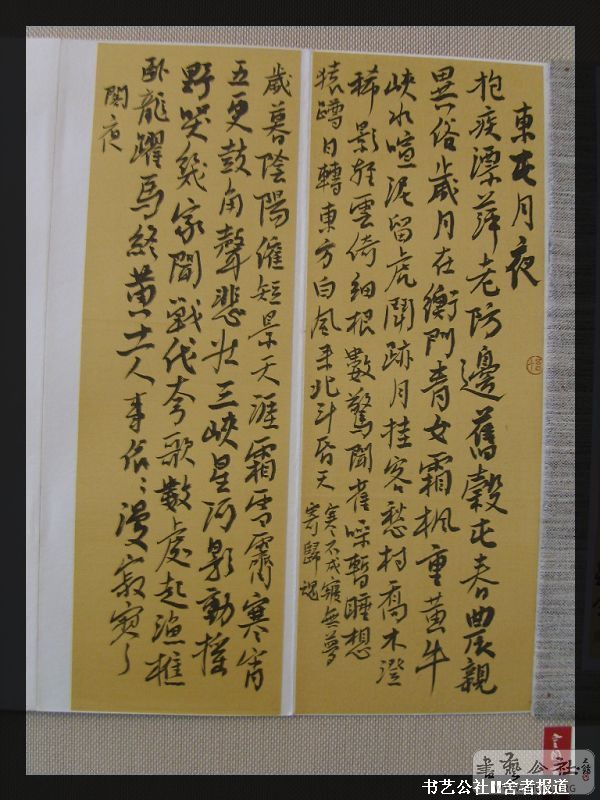 東屯月夜
抱疾漂萍老防邊舊穀屯春農親
異俗歲月在衡門青女霜楓重黃牛
峽水喧泥留虎鬪跡月挂客愁村喬木澄
稀影輕雲倚細根數驚聞雀噪暫睡想
猿蹲日轉東方白風來北斗昏天寒不成寐無夢
寄歸魂
歲暮陰陽催短景天涯霜雪霽寒宵
五更鼓角聲悲壯三峽星河影動搖
野哭幾家聞戰伐夷歌數處起漁樵
臥龍躍馬終黃土人事依〻漫寂寥
閣夜
書藝公社
书艺公社II舍者报道